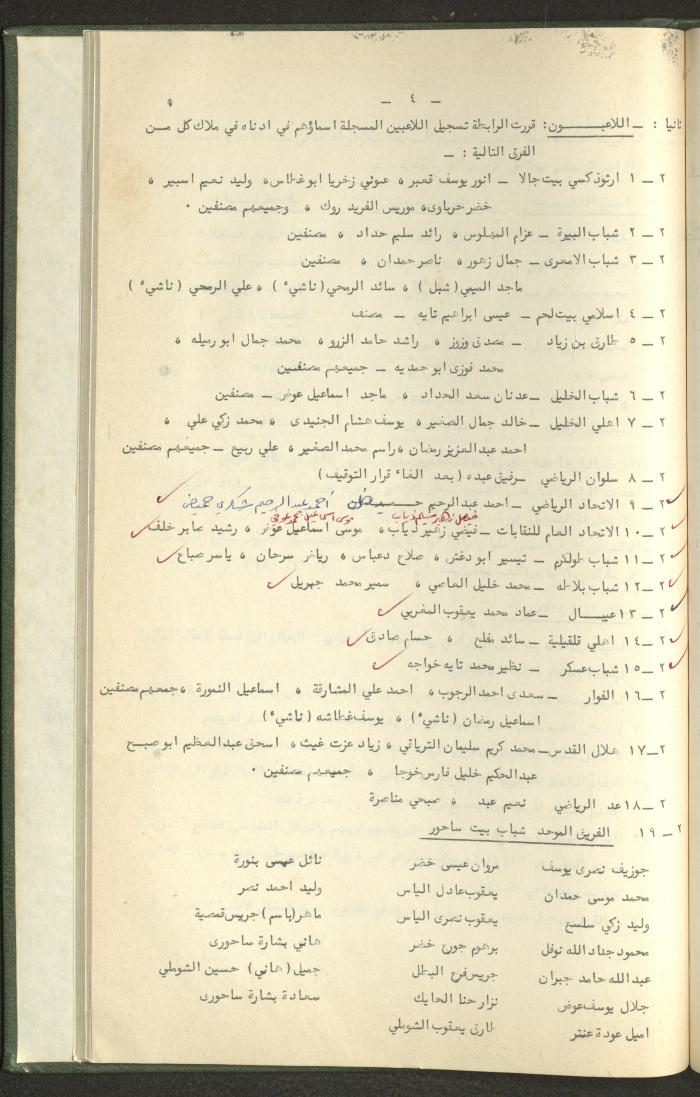 - ٤ -
ثانيا : - اللاعبـــــون : قررت الرابطة تسجيل اللاعبين المسجلة اسماؤهم في ادناه في ملاك كل مــن
الفرق التالية : -
٢ - ١ ارثوذكسي بيت جالا - انور يوسف قعبر ، عوني زخريا ابو غطاس، وليد نعيم اسبير ،
خضر حرباوى، موريس الفريد روك ، وجميعهم مصنفين .
٢ - ٢ شباب البيرة - عزام المهلوس ، رائد سليم حداد ، مصنفين
٢ - ٣ شباب الامعرى - جمال زهور ، ناصر حمدان ، مصنفين
ماجد الميمي( شبل ) ، سائد الرمحي( ناشيء ) ، علي الرمحي ( ناشيء )
٢ - ٤ اسلامي بيت لحم - عيسى ابراهيم تايه - مصنف
٢ - ٥ طارق بن زياد - مصدق وزوز ، راشد حامد الزرو ، محمد جمال ابو رميله ،
محمد فوزى ابو حمديه - جميعهم مصنفين
٢ - ٦ شباب الخليل - عدنان سعد الحداد ، ماجد اسماعيل عوض - مصنفين
٢ - ٧ اهلي الخليل - خالد جمال الصغير ، يوسف هشام الجنيدى ، محمد زكي علي ،
احمد عبدالعزيز رمضان ، راسم محمد الصغير ، علي ربيع - جميعهم مصنفين
٢ - ٨ سلوان الرياضي - رفيق عبده ( بعد الغاء قرار التوقيف)
٢ - ٩ الاتحاد الرياضي - احمد عبدالرحيم احمد عبد الرحيم شكري
فيصل زهير ذياب موسى اسماعيل
٢ - ١٠ الاتحاد العام للنقابات - فيضي زهير ذياب ، موسى اسماعيل عوض ، رشيد صابر خلف
٢ - ١١ شباب طولكرم - تيسير ابو دغش ، صلاح دعباس ، رياض سرحان ، ياسر صباح
٢ - ١٢ شباب بلاطه - محمد خليل العاصي ، سمير محمد جبريل
٢ - ١٣ عيبـــال - عماد محمد يعقوب المغربي
٢ - ١٤ اهلي قلقيلية - سائد مفلح ، حسام صادق
٢ - ١٥ شباب عسكر - نظير محمد تايه خواجه
٢ - ١٦ الفوار - سعدى احمد الرجوب ، احمد علي المشارقة ، اسماعيل النمورة ، جمعهم مصنفين
اسماعيل رمضان ( ناشيء) ، يوسف غطاشه ( ناشيء)
٢ - ١٧ هلال القدس - محمد كريم سليمان الترياقي ، زياد عزت غيث ، اسحق عبدالعظيم ابو صبـح
عبدالحكيم خليل فارس خوجا ، جميعهم مصنفين .
٢ - ١٨ عد الرياضي نعيم عبد ، صبحي مناصرة
٢ - ١٩ الفريق الموحد شباب بيت ساحور
جوزيف نصرى يوسف مروان عيسى خضر نائل عيسى بنورة
محمد موسى حمدان يعقوب عادل الياس وليد احمد نصر
وليد زكي سلسع يعقوب نصرى الياس ماهر (باسم ) جريس قمصية
محمود جادالله نوفل برهوم جورج خضر هاني بشارة ساحورى
عبدالله حامد جبران جريس فرح البطل جميل ( هاني ) حسين الشوملي
جلال يوسف عوض نزار حنا الحايك سعادة بشارة ساحورى
اميل عودة عنتر طارق يعقوب الشوملي